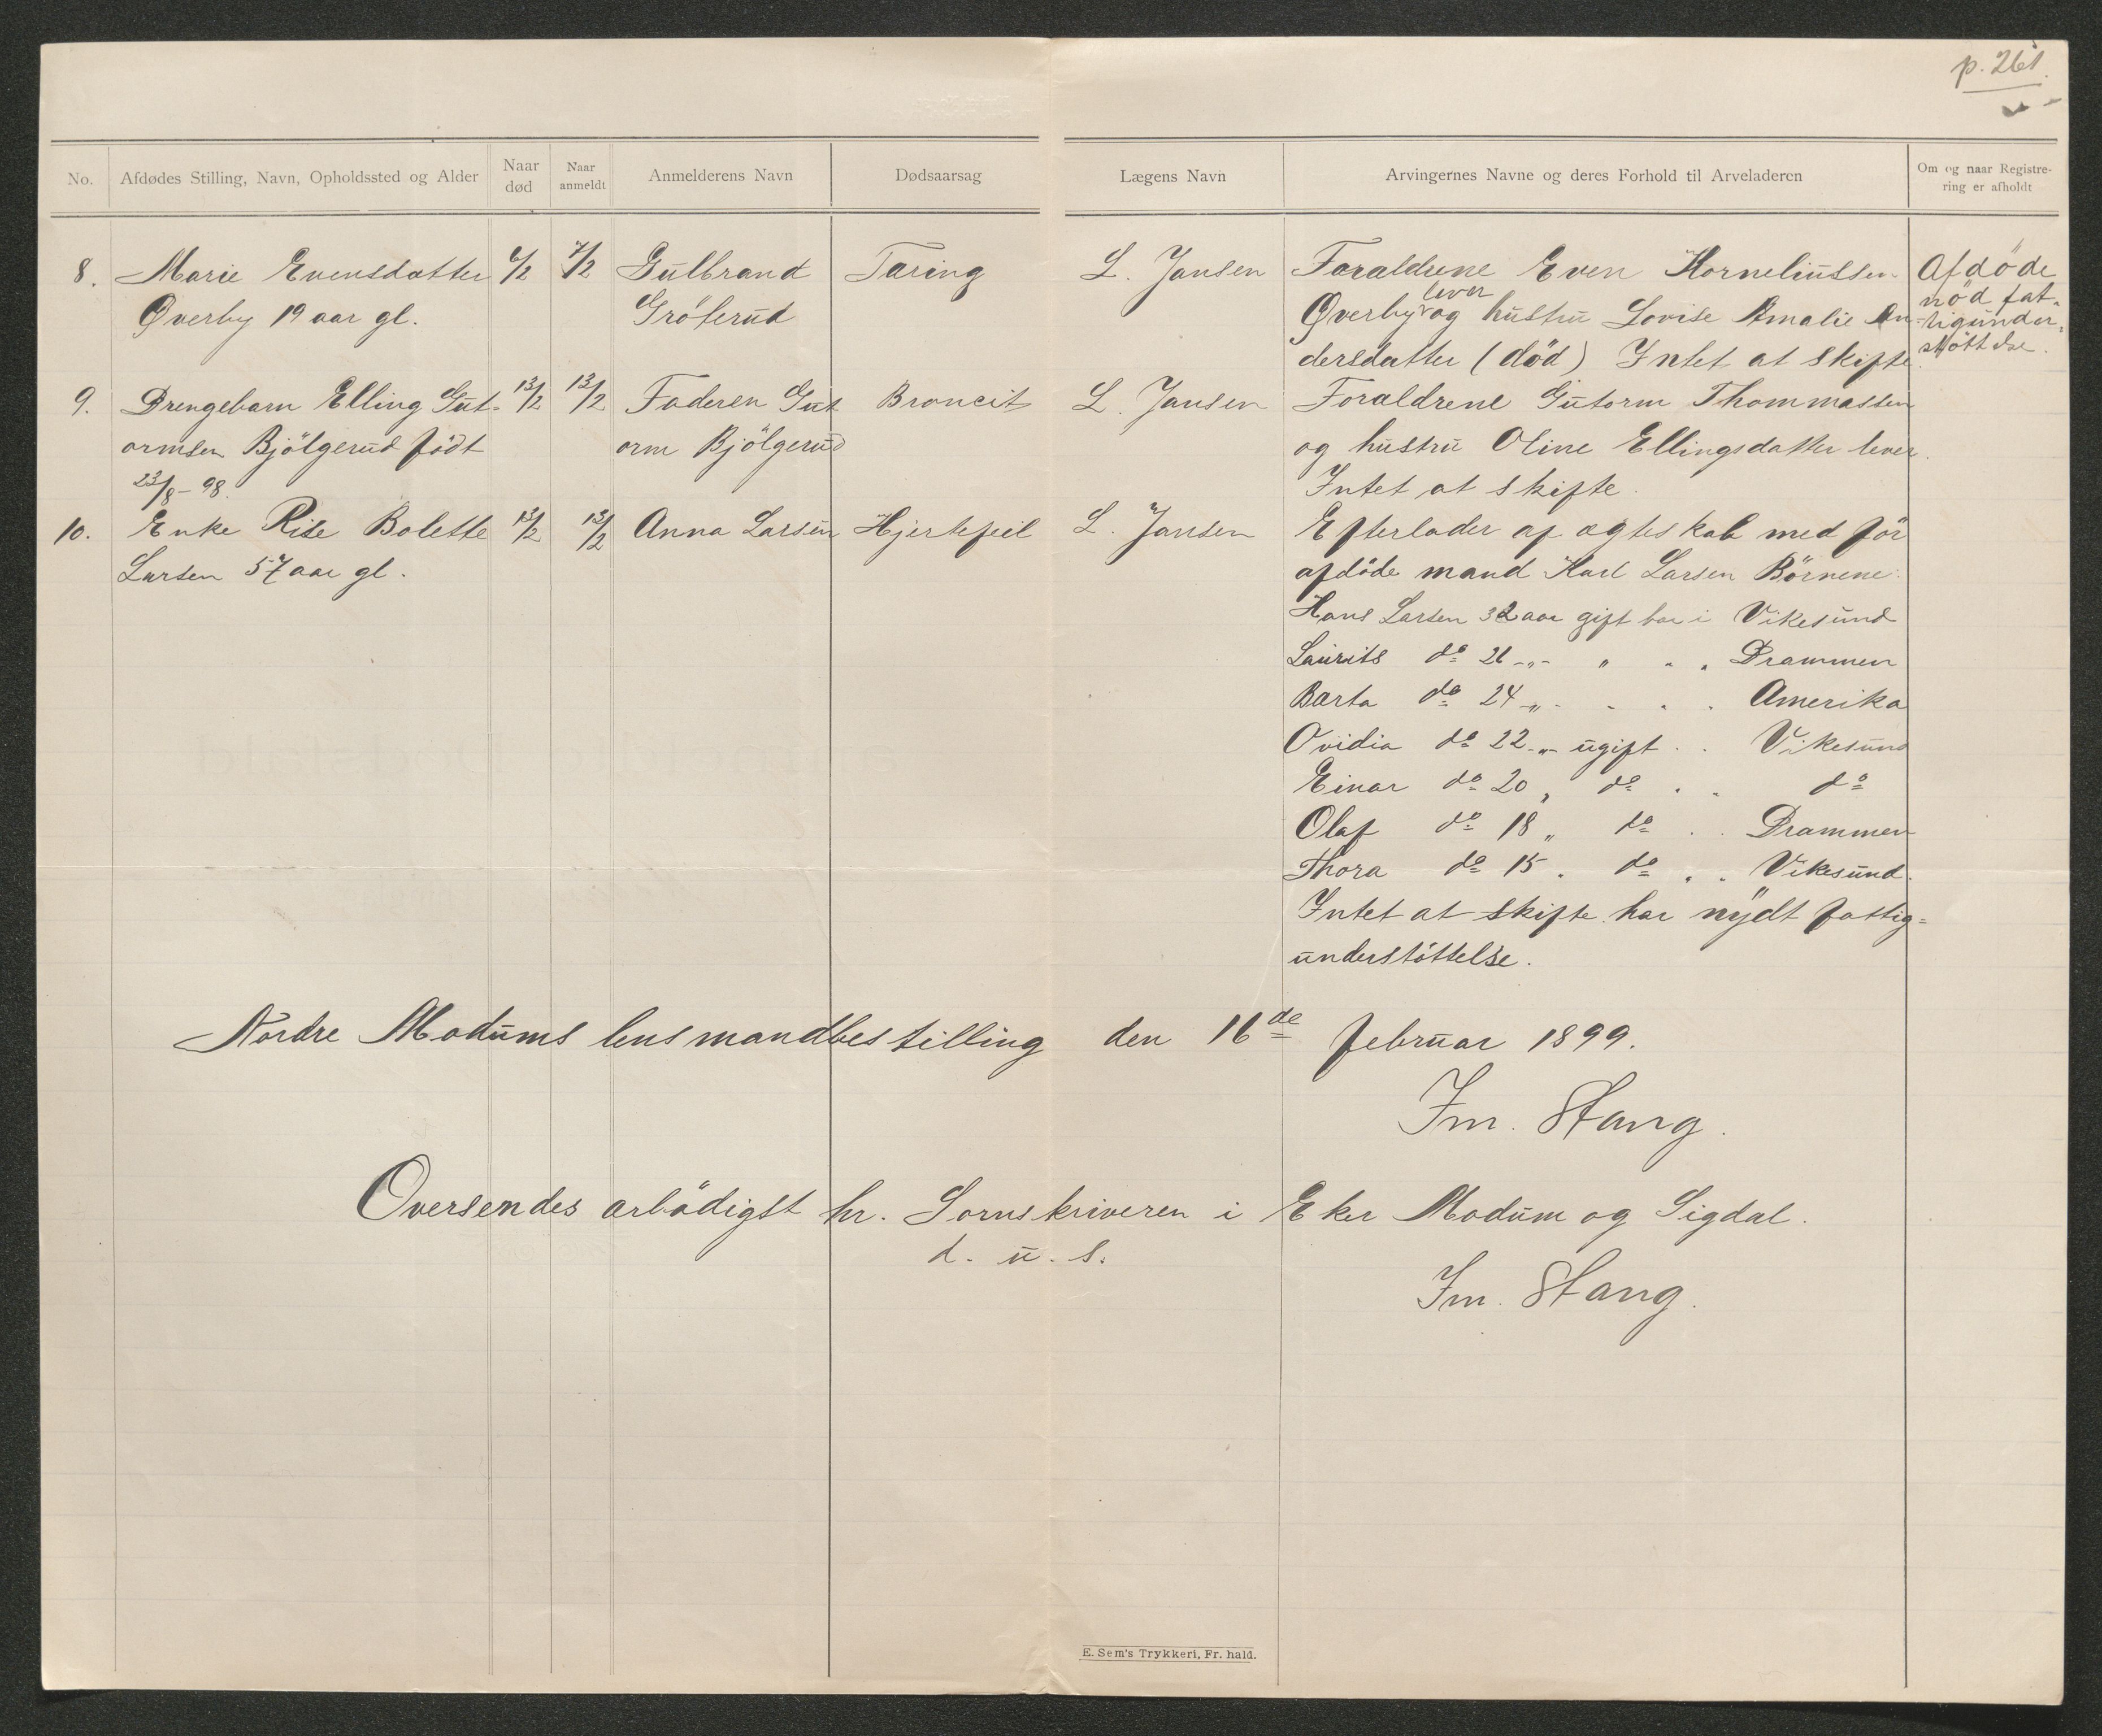 p. 261.
No. Afdødes Stilling, Navn, Opholdssted og Alder Naar død Naar anmeldt Anmelderens Navn Dødsaarsag Lægens Navn Arvingernes Navne og deres Forhold til Arveladeren Om og naar Registrering er afholdt
8. Marie Evensdatter 6/2 7/2 Gulbrand Tæring L. Jansen Forældrene Even Korneliussen Afdøde
Øverby 19 aar gl. Gröterud Øverby lever og hustru Lovise Amalie An- nød fat-
dersdatter (död) Intet at skifte. tigunder-
støttelse.
9. Drengebarn Elling Gut- 13/2 13/2 Faderen Gut Broncit L. Jansen Forældrene Gutorm Thommassen
ormsen Bjölgerud födt orm Bjölgerud og hustru Oline Ellingsdatter lever.
23/8-98. Intet at skifte.
10. Enke Rise Bolette 13/2 13/2 Anna Larsen Hjertefeil L. Jansen Efterlader af ægteskab med för
Larsen 57 aar gl. afdöde mand Karl Larsen Börnene:
Hans Larsen 32 aar gift bor i Vikesund
Laurits do 26 -"- " " " Drammen
Barta do 24 -"- " " " Amerika
Ovidia do 22 -"- ugift " " Vikesund
Einar do 20 " do " " do
Olaf do 18 " do " " Drammen
Thora do 15 " do " " Vikesund.
Intet at skifte har nydt fattig=
understöttelse.
Nordre Modums lensmandbestilling den 16de februar 1899.
Jm. Stang.
Oversendes ærbödigst hr. Sornskriveren i Eker Modum og Sigdal.
d. u. s.
Jm. Stang.
E. Sem's Trykkeri, Fr. hald.